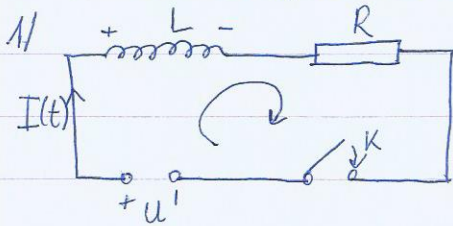 1/
+ L -
R
I(t)
K
+ U -